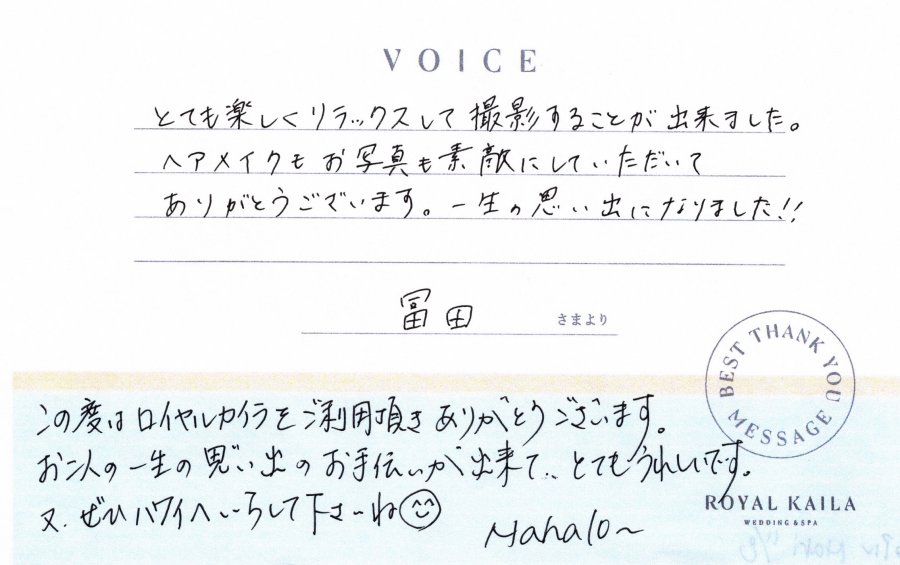 VOICE
とても楽しくリラックスして撮影することが出来ました。
ヘアメイクもお写真も素敵にしていただいて
ありがとうございます。一生の思い出になりました!!
冨田 さまより
BEST THANK YOU MESSAGE
この度はロイヤルカイラをご利用頂きありがとうございます。
お二人の一生の思い出のお手伝いが出来て、とてもうれしいです。
又、ぜひハワイへいらして下さいね
Mahalo~
ROYAL KAILA
WEDDING & SPA